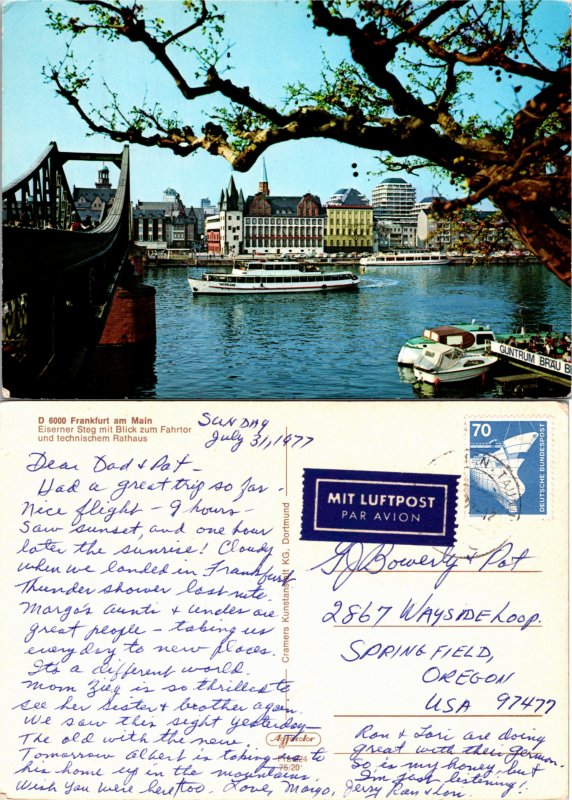 GUNTRUM BRÄU B
D 6000 Frankfurt am Main
Eiserner Steg mit Blick zum Fahrtor
und technischem Rathaus
SUNDAY
July 31, 1977
Dear Dad & Pat -
Had a great trip so far
Nice flight - 9 hours -
Saw sunset, and one hour
later the sunrise! Cloudy
when we landed in Frankfurt
Thunder shower last nite.
Margo's aunts & uncles are
great people - taking us
everyday to new places.
It's a different world.
Mom Zieg is so thrilled to
see her sister & brother again.
We saw this sight yesterday -
The old with the new.
Tomorrow Albert is taking us to
his home up in the mountains.
Wish you were here too. Love, Margo, Jerry Ron & Lori.
Cramers Kunstanstalt KG, Dortmund
70
DEUTSCHE BUNDESPOST
MIT LUFTPOST
PAR AVION
Bowerly & Pat
2867 WAYSIDE LOOP.
SPRINGFIELD,
OREGON
USA 97477
Ron & Lori are doing
great with their German.
So is my honey, but
I'm just listening!